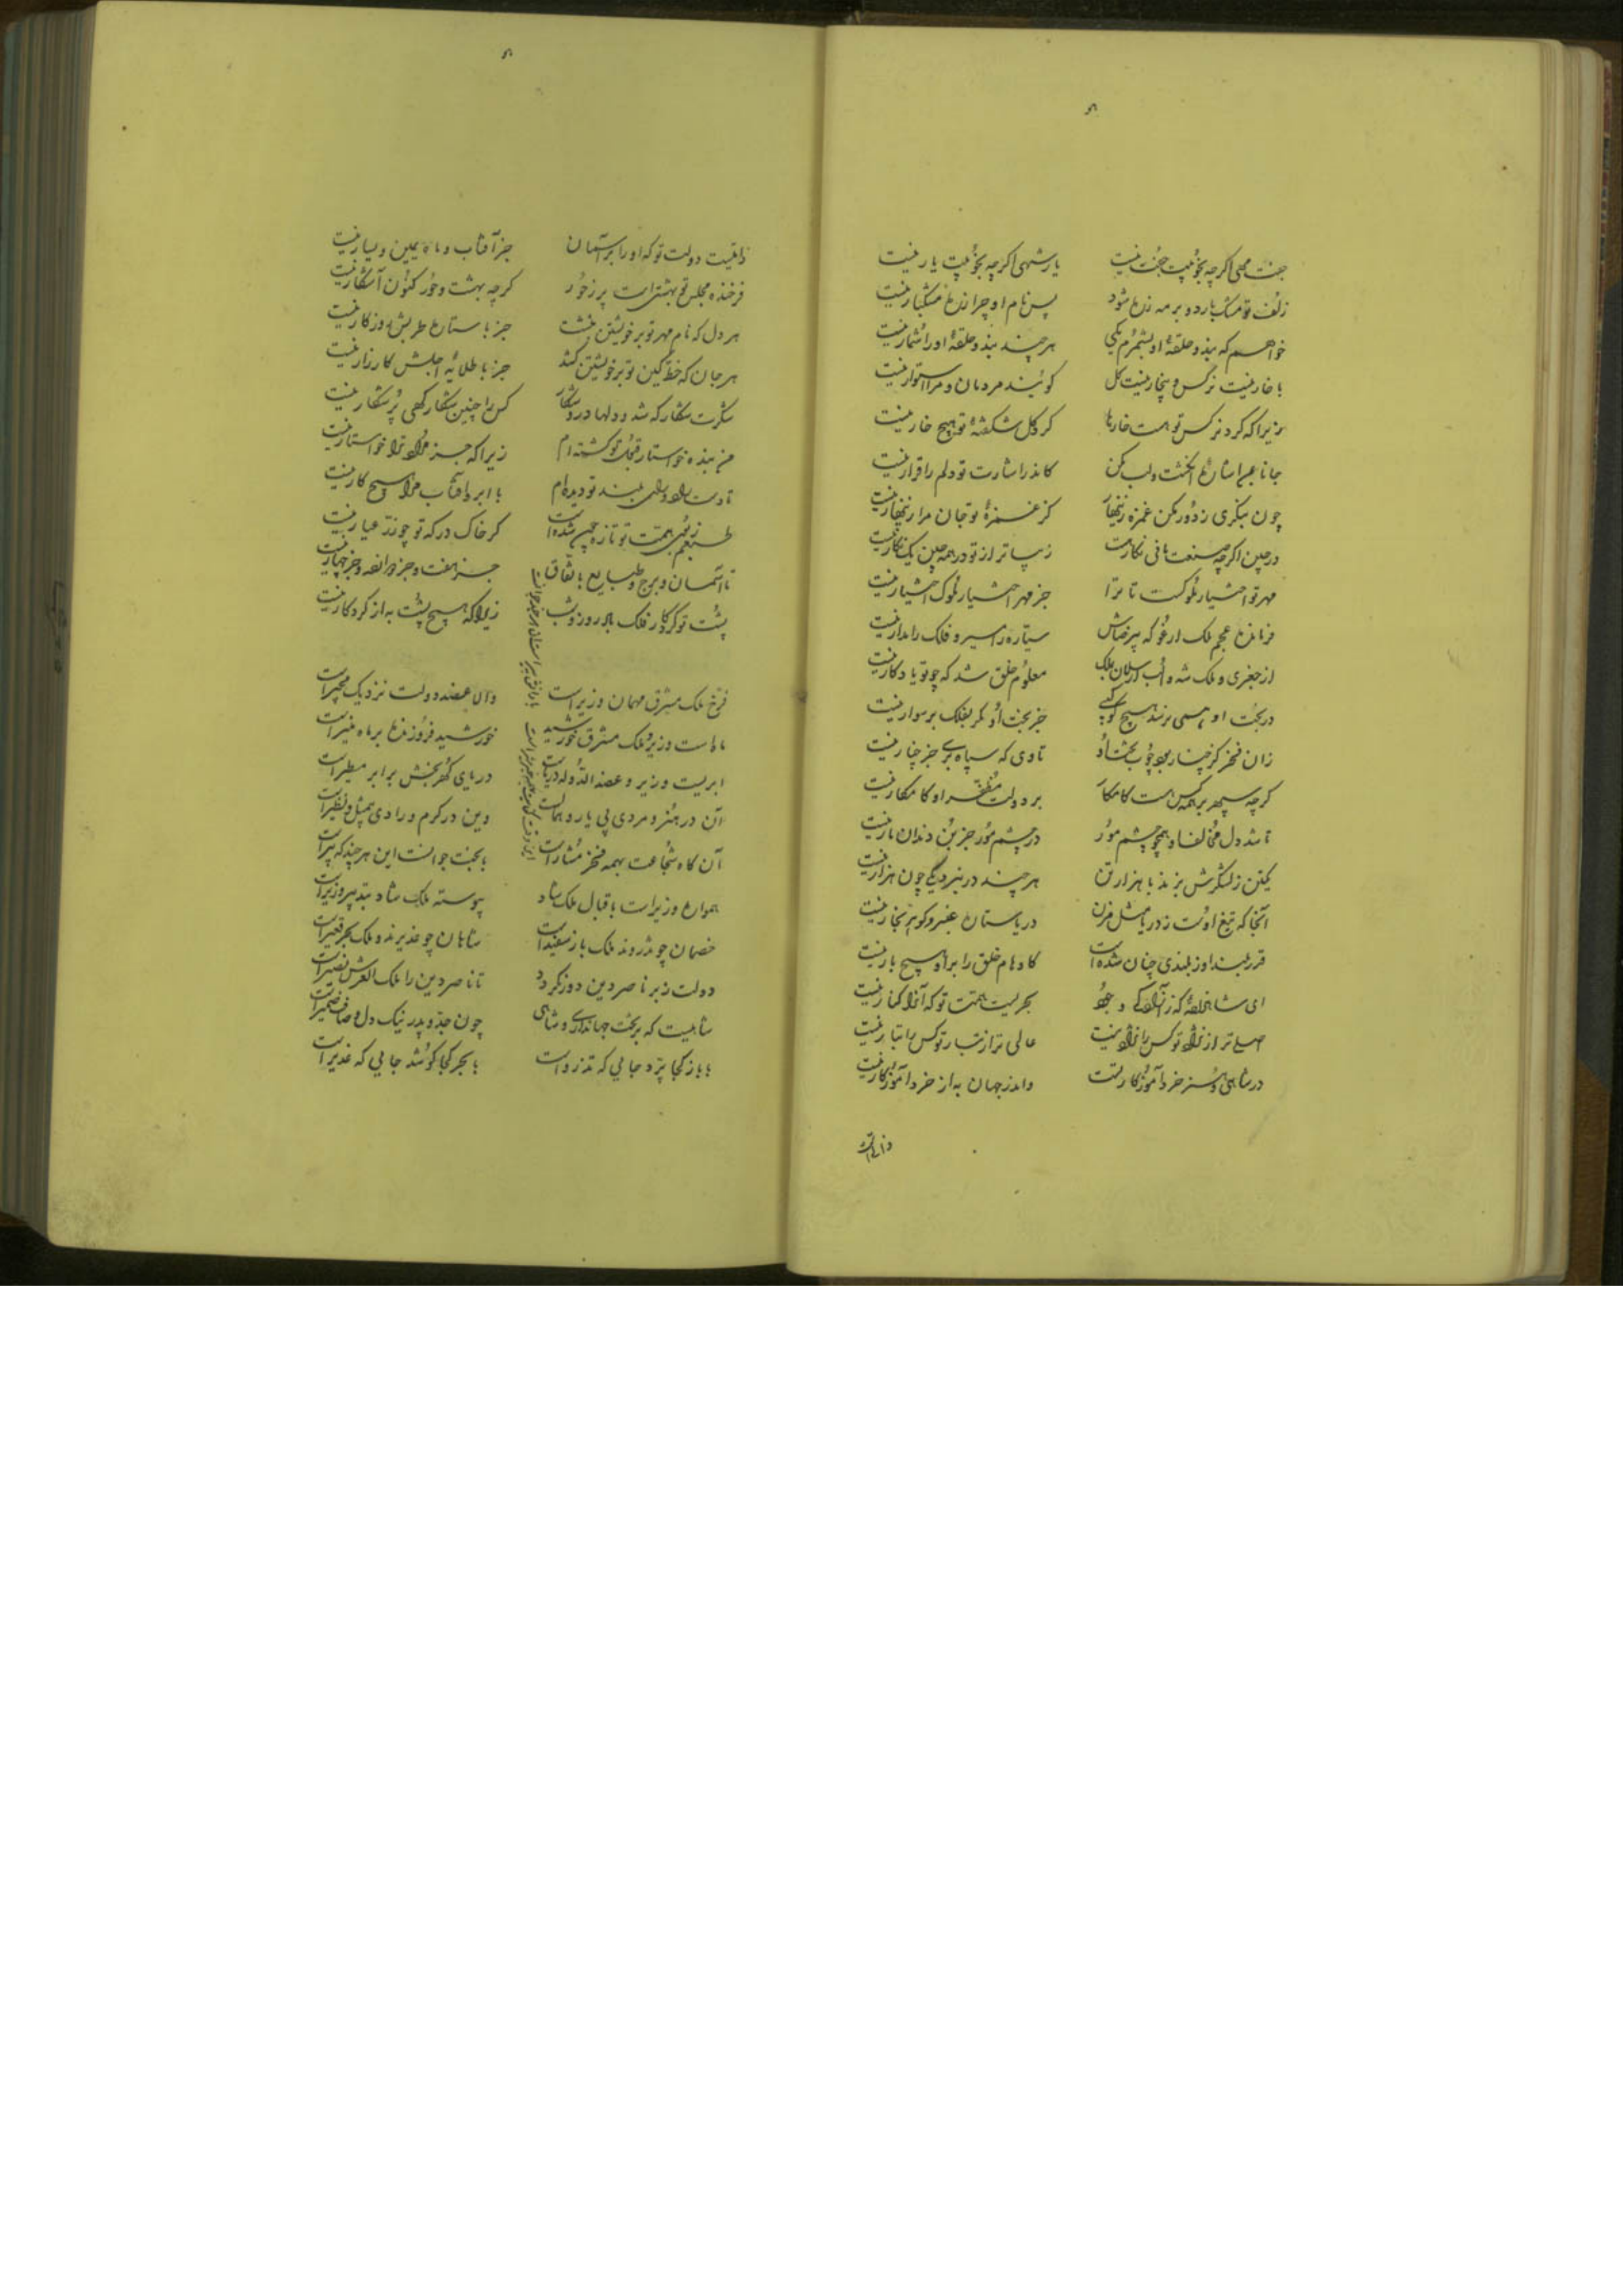 جفت مهی اگرچه بخوبیت جفت نیست یار شهی اگرچه بخوبیت یار نیست
زلف تو مشک بارد و بر مه زره شود پس نام او چرا زره مشکبار نیست
خواهم که بند و حلقهٔ او بشمرم یکی هرچند بند و حلقهٔ او را شمار نیست
با خار نیست نرگس و بیخار نیست گل گویند مردمان و مرا استوار نیست
زیرا که گرد نرگس تو هست خارها گرد گل شکفتهٔ تو هیچ خار نیست
جانا بمیر اشارة انگشت ولب مکن کاندر اشارت تو دلم را قرار نیست
چون بنگری ز دور مکن غمزه زینهار کز غمزهٔ تو جان مرا زینهار نیست
در چین اگرچه صنعت مانی نگار هست زیباتر از تو در همه چین یک نگار نیست
مهر تو اختیار ملوک است تا ترا جز مهر اختیار ملوک اختیار نیست
فرمانده عجم ملک ارغو که بیرضاش سیاره را مسیر و فلک را مدار نیست
از جغری و ملک شه و الب ارسلان بملک معلوم خلق شد که چو تو یادگار نیست
در بخت او همی نرسد هیچ کوکبی جز بخت او مگر بفلک بر سوار نیست
زان فخر کز چنار بود چوب تخت او تا وی که سپاه بری جز چنار نیست
گرچه سپهر بر همه کس هست کامکار بر دولت مظفر او کامکار نیست
تا شد دل مخالف او همچو چشم مور در چشم مور جز بن دندان مار نیست
یکتن ز لشکرش بزند با هزار تن هرچند در نبرد یکی چون هزار نیست
آنجا که تیغ اوست ز دریا مثل مزن دریاستان عنبر و گوهر نگار نیست
قدر بلند او ز بلندی چنان شده است کاوهام خلق را بر او هیچ بار نیست
ای شاهزادهٔ که ز آزادگی و جود بحریست همت تو که آنرا کنار نیست
اصلی تر از نژاد تو کس را نژاد نیست عالی تر از تبار تو کس را تبار نیست
در شاهی و هنر خرد آموزگار تست واندر جهان به از خرد آموزگار نیست
ذاتیست دولت تو که او را بر آسمان جز آفتاب و ماه یمین و یسار نیست
فرخنده مجلس تو بهشتی است پر ز حور گرچه بهشت و حور کنون آشکار نیست
هر دل که نام مهر تو بر خویشتن نبشت جز با ستارهٔ طربش روزگار نیست
هر جان که خط کین تو بر خویشتن کشد جز با طلایهٔ اجلش کارزار نیست
شکرت شکار گه شد و دلها درو شکار کس را چنین شکارگهی پر شکار نیست
من بنده خواستار قبول تو گشته ام زیرا که جز مراد ترا خواستار نیست
تا دست راد و رای بلند تو دیده ام با ابر و آفتاب مرا هیچ کار نیست
طبعم ز بهر همت تو تازه چین شده است گر خاک درگه تو چو زر عیار نیست
تا آسمان و برج و طبایع باتفاق جز هفت و جز دوازده و جز چهار نیست
پشت تو کردگار فلک باد روز و شب زیرا که هیچ پشت به از کردگار نیست
فرخ ملک مشرق مهمان وزیر است وان عضد دولت نزدیک مجیر است
ماه است وزیر ملک مشرق خورشید خورشید فروزنده بر ماه منیر است
ابریست وزیر و عضد الدوله دریاست دریای گهربخش برابر مطیر است
آن در هنر و مردی بی یار و همال است وین در کرم و رادی بیمثل و نظیر است
آن گاه شجاعت بهمه فخر مشار است با بخت جوانست این هرچند که پیر است
همواره وزیر است باقبال ملک شاد پیوسته ملک شاد بتدبیر وزیر است
خصمان چو تذروند ملک باز سفید است شاهان چو غدیرند و ملک بحر قعیر است
دولت ز بر ناصر دین دور نگردد تا ناصر دین را ملک العرش نصیر است
شاهیست که بر تخت جهانداری و شاهی چون جد و پدر نیک دل و صاف ضمیر است
با باز کجا پرد جایی که تذرو است با بحر کجا کوشد جایی که غدیر است